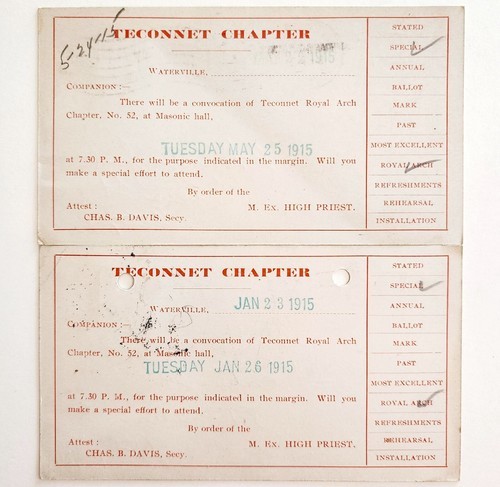 5-24-15
TECONNET CHAPTER
1915
WATERVILLE,
COMPANION :—
There will be a convocation of Teconnet Royal Arch
Chapter, No. 52, at Masonic hall,
TUESDAY MAY 25 1915
at 7.30 P. M., for the purpose indicated in the margin. Will you
make a special effort to attend.
By order of the
Attest :
M. Ex. HIGH PRIEST.
CHAS. B. DAVIS, Secy.
STATED
SPECIAL
ANNUAL
BALLOT
MARK
PAST
MOST EXCELLENT
ROYAL ARCH
REFRESHMENTS
REHEARSAL
INSTALLATION
TECONNET CHAPTER
WATERVILLE, JAN 23 1915
COMPANION :—
There will be a convocation of Teconnet Royal Arch
Chapter, No. 52, at Masonic hall,
TUESDAY JAN 26 1915
at 7.30 P. M., for the purpose indicated in the margin. Will you
make a special effort to attend.
By order of the
Attest :
M. Ex. HIGH PRIEST.
CHAS. B. DAVIS, Secy.
STATED
SPECIAL
ANNUAL
BALLOT
MARK
PAST
MOST EXCELLENT
ROYAL ARCH
REFRESHMENTS
REHEARSAL
INSTALLATION